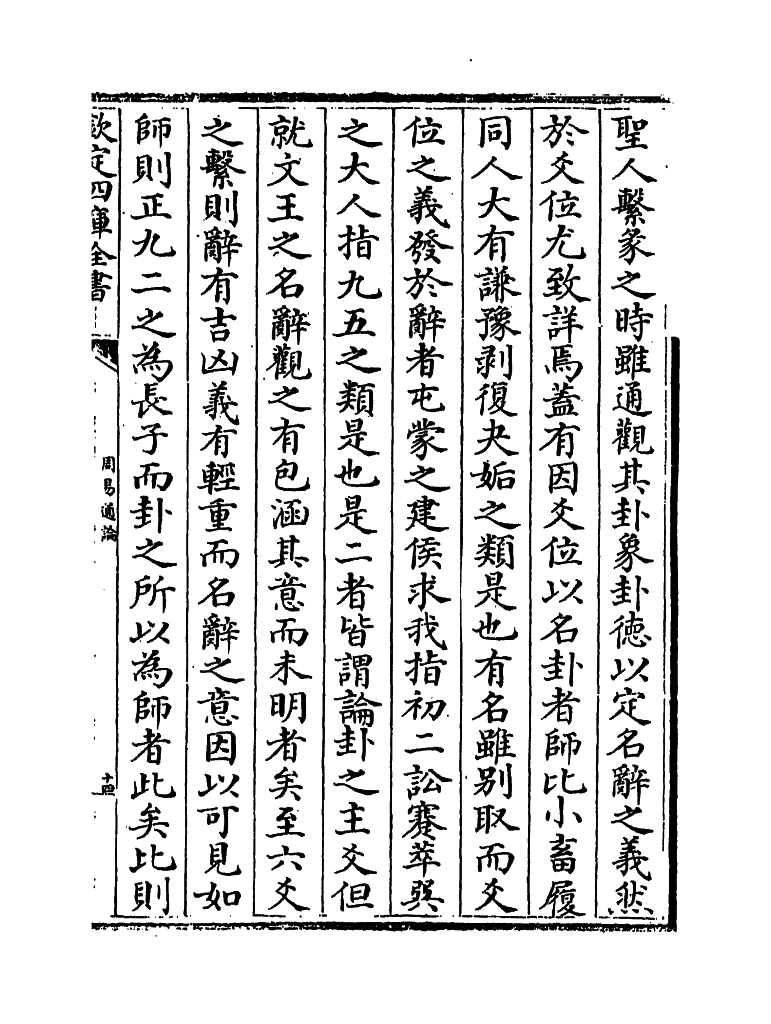 聖人繫彖之時雖通觀其卦象卦德以定名辭之義然
於爻位尤致詳焉蓋有因爻位以名卦者師比小畜履
同人大有謙豫剥復夬姤之類是也有名雖别取而爻
位之義發於辭者屯蒙之建侯求我指初二訟蹇萃巽
之大人指九五之類是也是二者皆謂論卦之主爻但
就文王之名辭觀之有包涵其意而未明者矣至六爻
之繫則辭有吉凶義有輕重而名辭之意因以可見如
師則正九二之為長子而卦之所以為師者此矣比則
欽定四庫全書
周易通論
十四